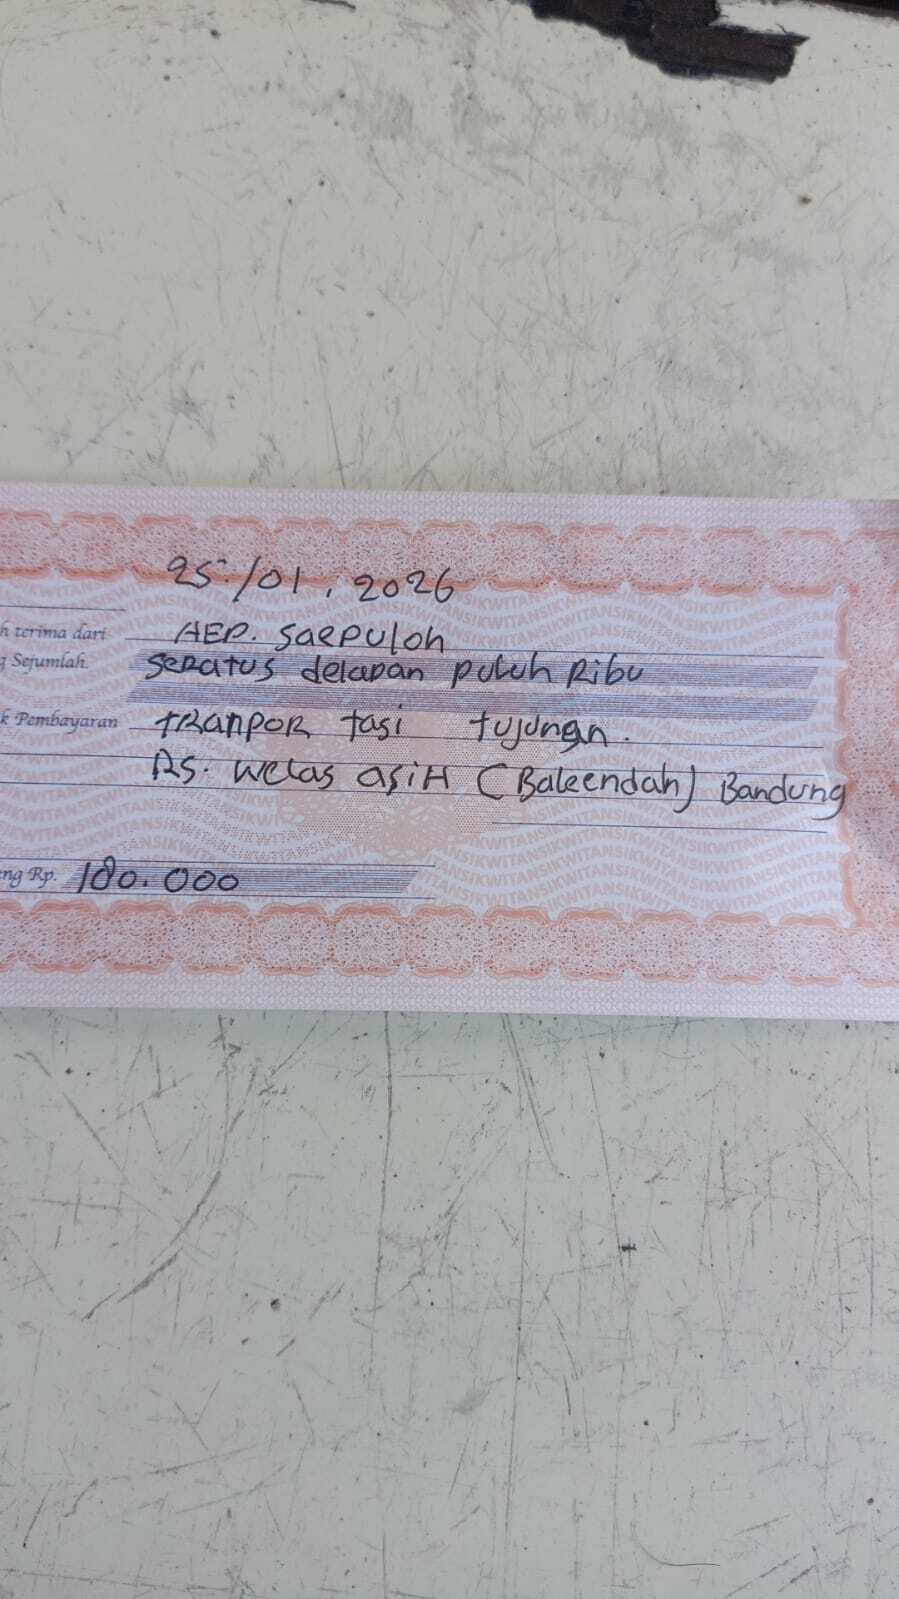 25-/01, 2026
h terima dari AEP. SaePuloh
g Sejumlah. Seratus delapan puluh Ribu
k Pembayaran tRanpor tasi tujungan.
RS. Welas asiH (Baleendah) Bandung
ng Rp. 180.000